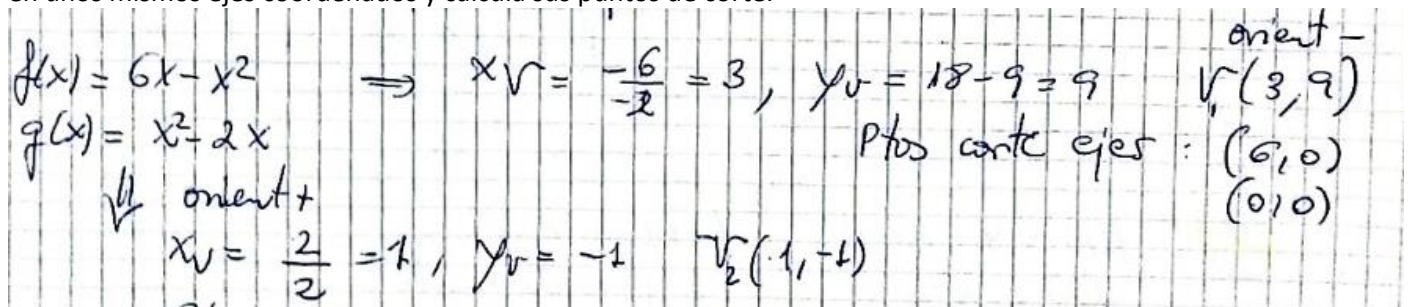 en unos mismos ejes coordenados y calcula sus puntos de corte.
orient -
f(x) = 6x - x² ⟹ xv = -6/-2 = 3, yv = 18 - 9 = 9 V₁(3,9)
g(x) = x² - 2x Ptos corte ejes : (6,0)
⇓ orient + (0,0)
xv = 2/2 = 1, yv = -1 V₂(1,-1)